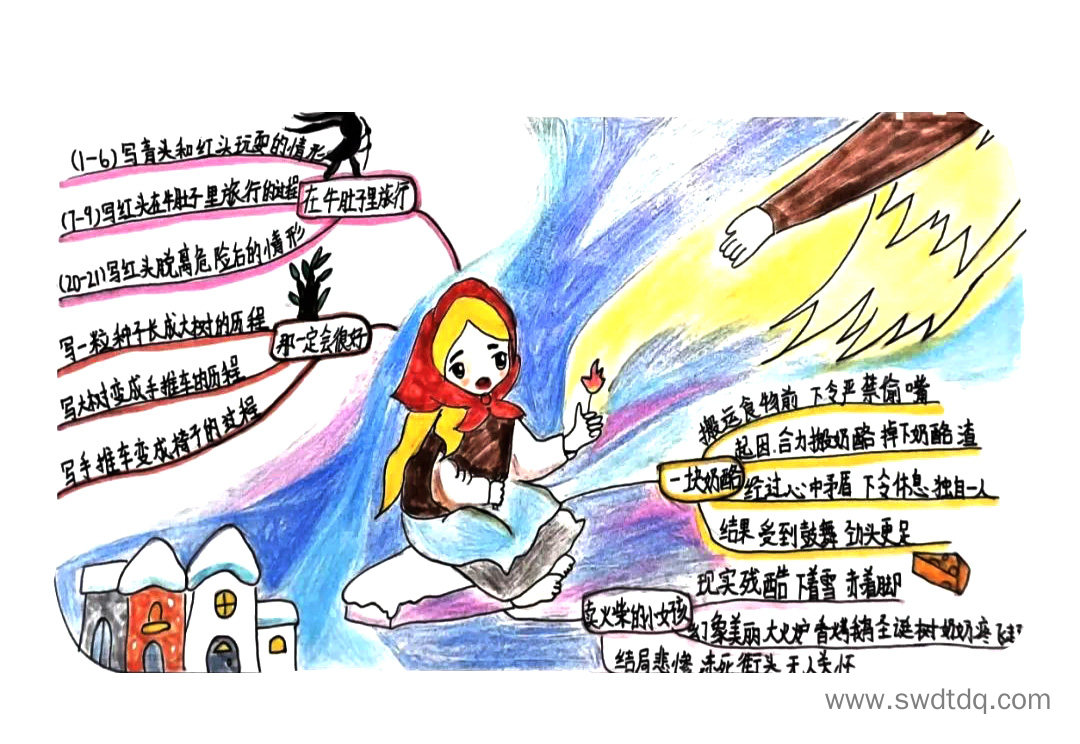 (1-6)写青头和红头玩耍的情形
(7-9)写红头在牛肚子里旅行的过程
在牛肚子里旅行
(20-21)写红头脱离危险后的情形
写一粒种子长成大树的历程
那一定会很好
写大树变成手推车的历程
写手推车变成椅子的过程
搬运食物前 下令严禁偷嘴
起因.合力搬奶酪 掉下奶酪渣
一块奶酪
经过心中矛盾 下令休息 独自一人
结果 受到鼓舞 劲头更足
现实残酷 下着雪 赤着脚
卖火柴的小女孩
幻象美丽 大火炉 香烤鹅 圣诞树 奶奶疼
结局悲惨 冻死街头 无人关怀
www.swdtdq.com